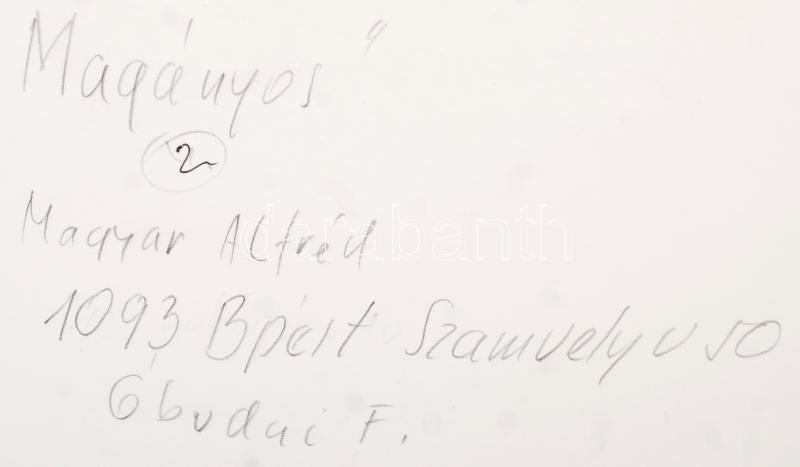 Magányos"
2
Magyar Alfréd
1093 Bpest Szamuely u 50
Óbudai F.
darabanth